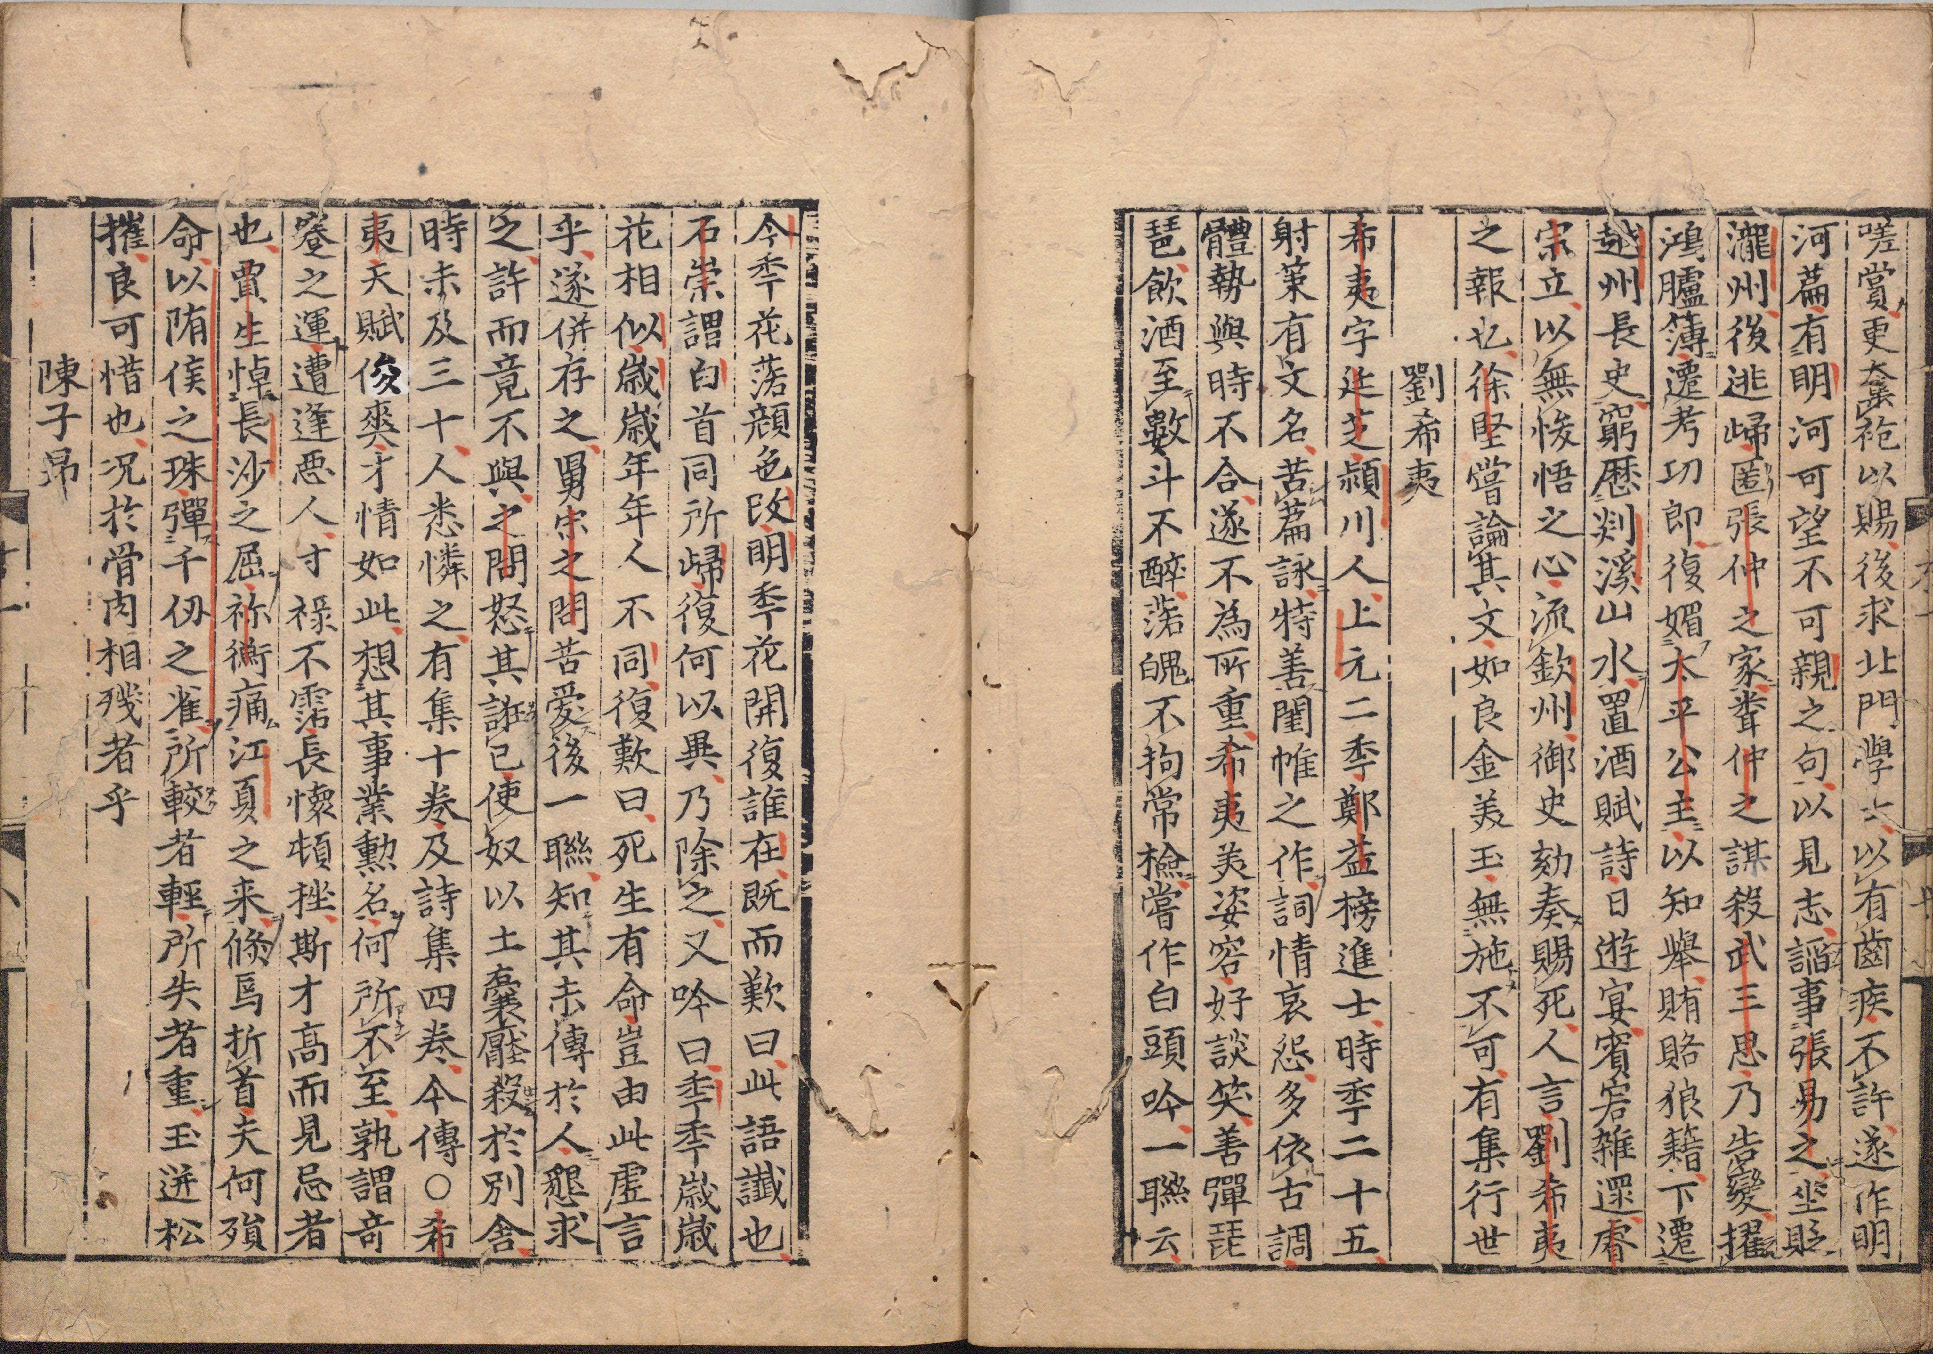 嗟賞更奪袍以賜後求北門學士以有齒疾不許遂作明
河篇有明河可望不可親之句以見志謟事張易之坐貶
瀧州後逃歸匿張仲之家聞仲之謀殺武三思乃告變擢
鴻臚簿遷考功郎復媚太平公主以知舉賄賂狼籍下遷
越州長史窮歷剡溪山水置酒賦詩日遊宴賓客雜還睿
宗立以無悛悟之心流欽州御史劾奏賜死人言劉希夷
之報也徐堅嘗論其文如良金美玉無施不可有集行世
劉希夷
希夷字廷芝潁川人上元二季鄭益榜進士時季二十五
射策有文名苦篇詠特善閨帷之作詞情哀怨多依古調
體勢與時不合遂不為所重希夷美姿容好談笑善彈琵
琶飲酒至數斗不醉落魄不拘常檢嘗作白頭吟一聯云
今季花落顔色改明季花開復誰在既而歎曰此語讖也
石崇謂白首同所歸復何以異乃除之又吟曰季季歲歲
花相似歲歲年年人不同復歎曰死生有命豈由此虛言
乎遂併存之舅宋之問苦愛後一聯知其未傳於人懇求
之許而竟不與之問怒其誑己使奴以土囊壓殺於別舍
時未及三十人悉憐之有集十卷及詩集四卷今傳○希
夷天賦俊爽才情如此想其事業勳名何所不至孰謂奇
蹇之運遭逢惡人寸祿不霑長懷頓挫斯才高而見忌者
也賈生悼長沙之屈祢衡痛江夏之来倏焉折首夫何殞
命以隋侯之珠彈千仞之雀所較者輕所失者重玉迸松
摧良可惜也况於骨肉相殘者乎
陳子昻